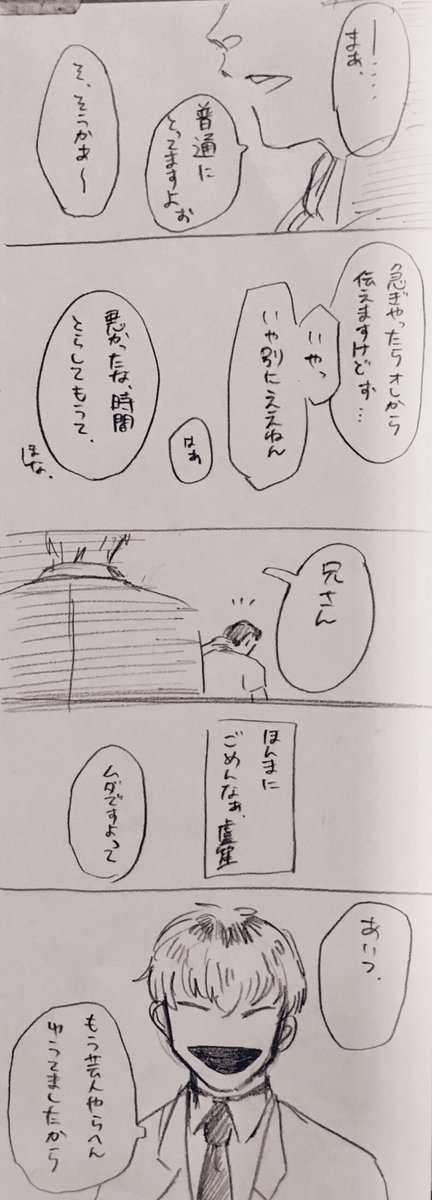 ……
まあ、
普通に
とってますよぉ
そ、そうかぁ〜
急ぎやったらオレから
伝えますけどぉ…
いやっ
いや別にええねん
はぁ
悪かったな、時間
とらしてもうて、
ほな、
兄さん
ほんまに
ごめんなぁ、
ムダですよって
あいつ、
もう芸人やらへん
ゆうてましたから